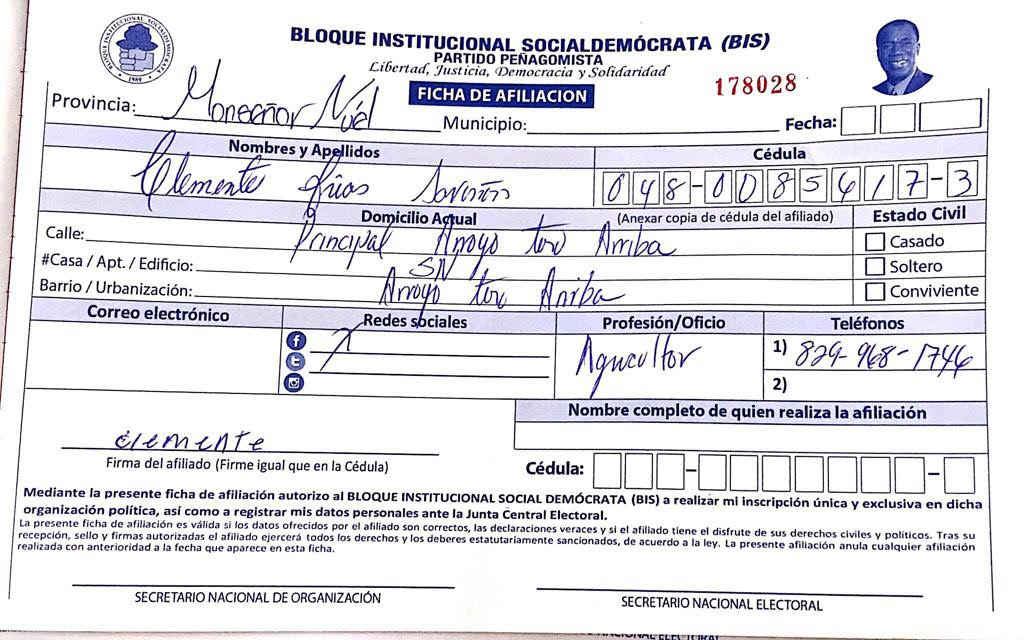 BLOQUE INSTITUCIONAL SOCIALDEMÓCRATA
1989
BLOQUE INSTITUCIONAL SOCIALDEMÓCRATA (BIS)
PARTIDO PEÑAGOMISTA
Libertad, Justicia, Democracia y Solidaridad
FICHA DE AFILIACION
178028
Provincia: Monseñor Nouel Municipio: Fecha:
Nombres y Apellidos Cédula
Clemente frias 048-0085617-3
Domicilio Actual (Anexar copia de cédula del afiliado) Estado Civil
Calle: Principal Arroyo toro Arriba Casado
#Casa / Apt. / Edificio: SN Soltero
Barrio / Urbanización: Arroyo toro Arriba Conviviente
Correo electrónico Redes sociales Profesión/Oficio Teléfonos
Agricultor 1) 829-968-1746
2)
Nombre completo de quien realiza la afiliación
clemente
Firma del afiliado (Firme igual que en la Cédula) Cédula:
Mediante la presente ficha de afiliación autorizo al BLOQUE INSTITUCIONAL SOCIAL DEMÓCRATA (BIS) a realizar mi inscripción única y exclusiva en dicha
organización política, así como a registrar mis datos personales ante la Junta Central Electoral.
La presente ficha de afiliación es válida si los datos ofrecidos por el afiliado son correctos, las declaraciones veraces y si el afiliado tiene el disfrute de sus derechos civiles y políticos. Tras su
recepción, sello y firmas autorizadas el afiliado ejercerá todos los derechos y los deberes estatutariamente sancionados, de acuerdo a la ley. La presente afiliación anula cualquier afiliación
realizada con anterioridad a la fecha que aparece en esta ficha.
SECRETARIO NACIONAL DE ORGANIZACIÓN SECRETARIO NACIONAL ELECTORAL